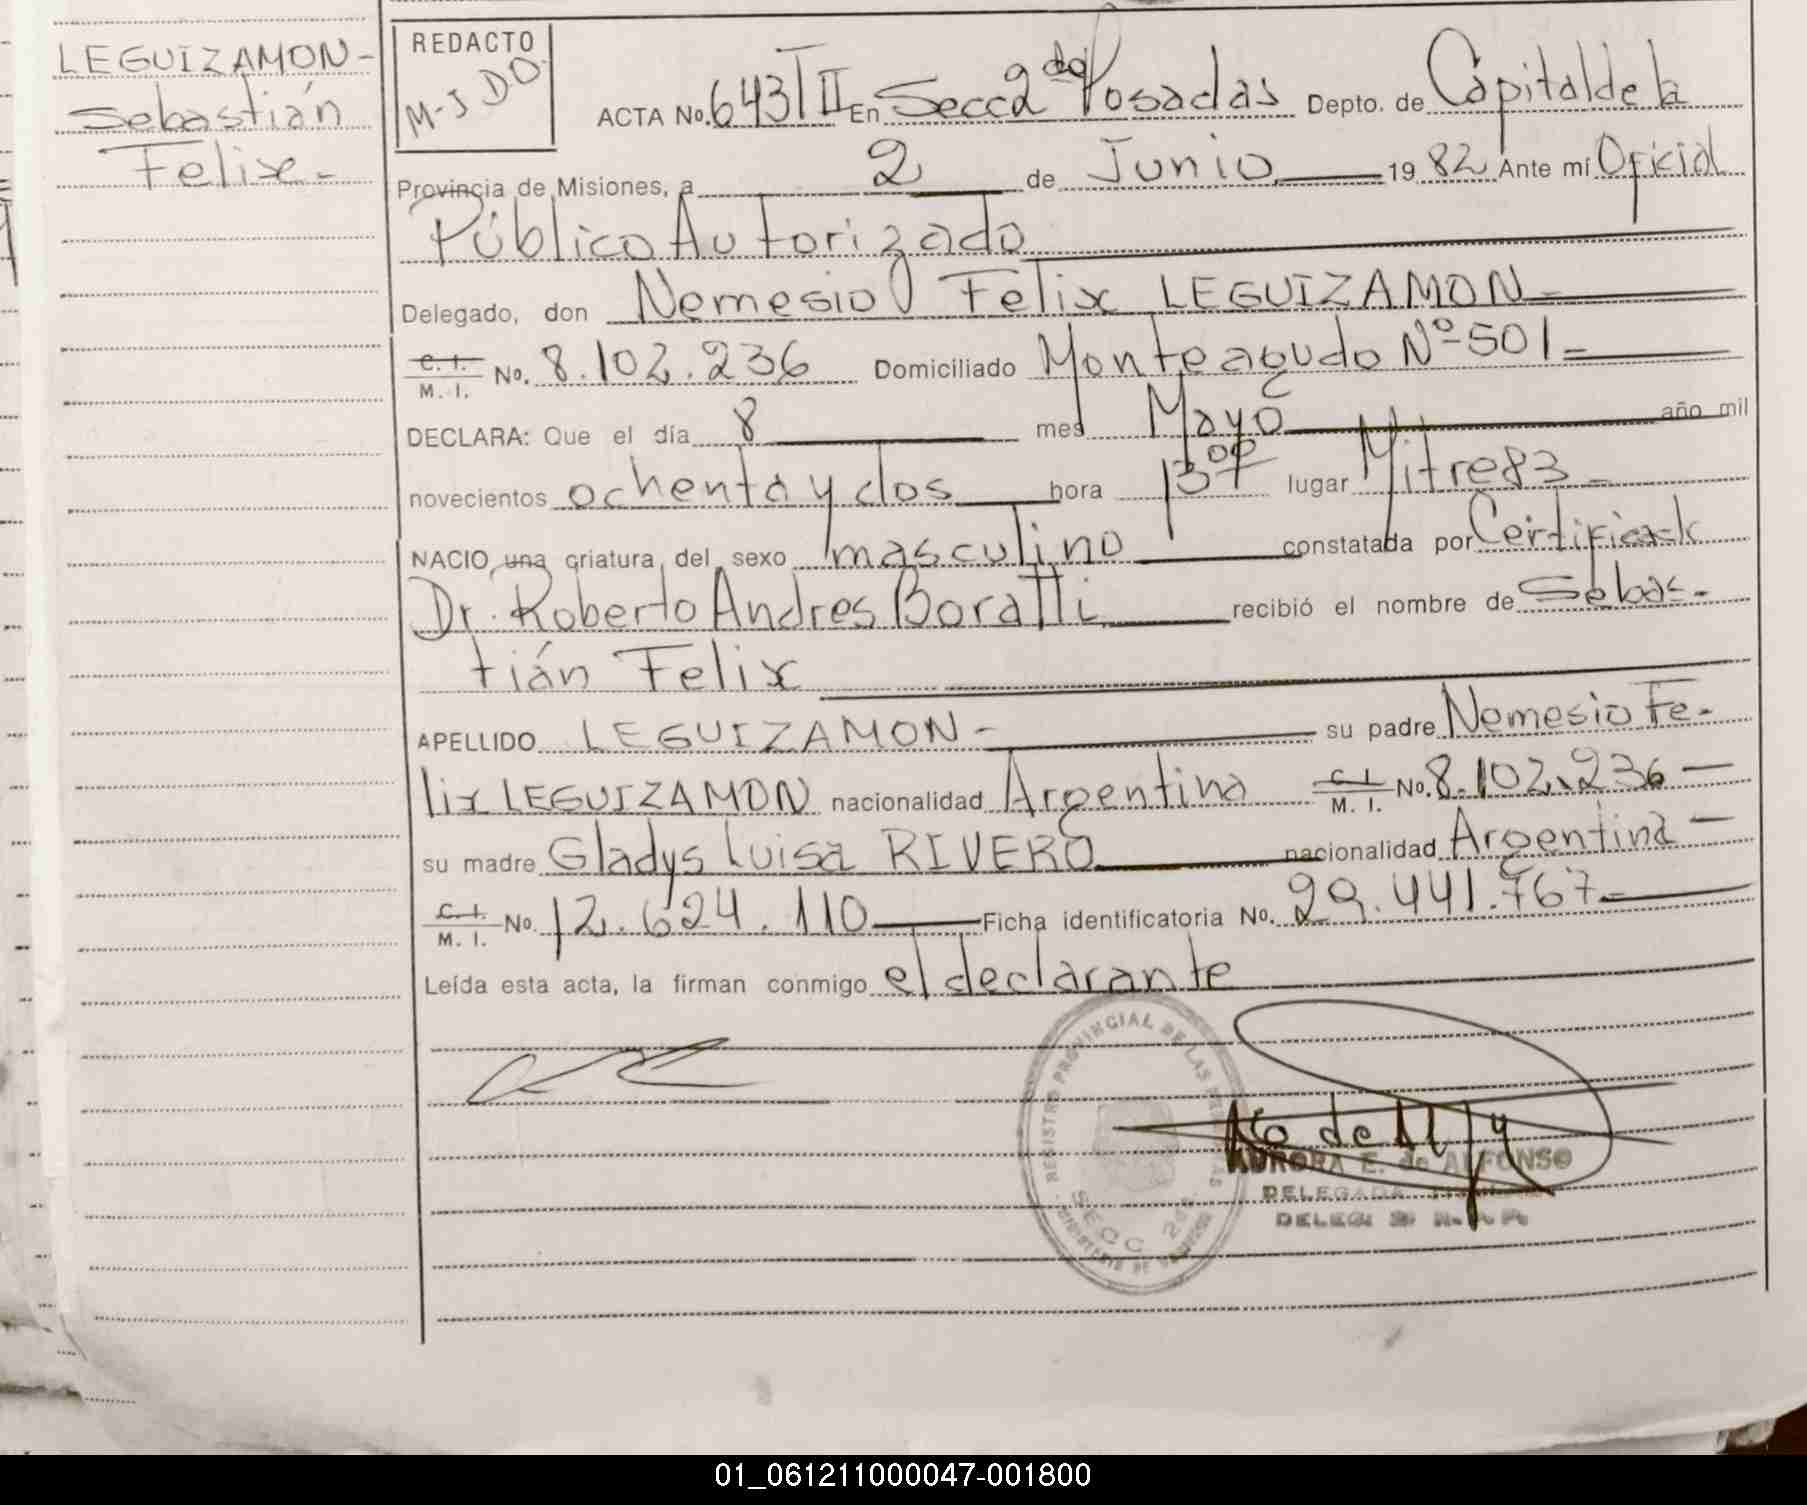 LEGUIZAMON-
Sebastián
Felix-
REDACTO
M-J DO.
ACTA No. 643 T II En Secc 2da Posadas Depto. de Capital de la
Provincia de Misiones, a 2 de Junio 19 82 Ante mí Oficial
Público Autorizado
Delegado, don Nemesio Felix LEGUIZAMON-
C. I.
M. I.
No. 8.102.236 Domiciliado Monteagudo Nº 501-
DECLARA: Que el día 8 mes Mayo año mil
novecientos ochenta y dos hora 13 00 lugar Mitre 83-
NACIO una criatura del sexo masculino constatada por
Dr. Roberto Andres Boratti recibió el nombre de Sebas-
tián Felix
APELLIDO LEGUIZAMON- su padre Nemesio Fe-
lix LEGUIZAMON nacionalidad Argentina C. I.
M. I.
No. 8.102.236-
su madre Gladys Luisa RIVERO nacionalidad Argentina-
C. I.
M. I.
No. 12.624.110 Ficha identificatoria No. 29.441.767-
Leída esta acta, la firman conmigo el declarante
REGISTRO PROVINCIAL DE LAS
SECC 2da
AURORA E. de ALFONSO
DELEGADA
01_061211000047-001800